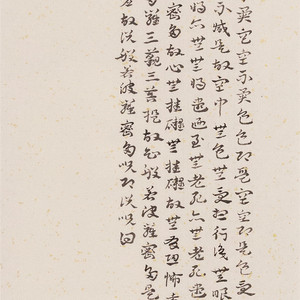 不異空空不異色色即是空空即是色受
不減是故空中無色無受想行識無眼
明亦無無明盡乃至無老死亦無老死盡
密多故心無罣礙無罣礙故無有恐怖遠
多羅三藐三菩提故知般若波羅密多是
虛故說般若波羅密多呪即說呪曰